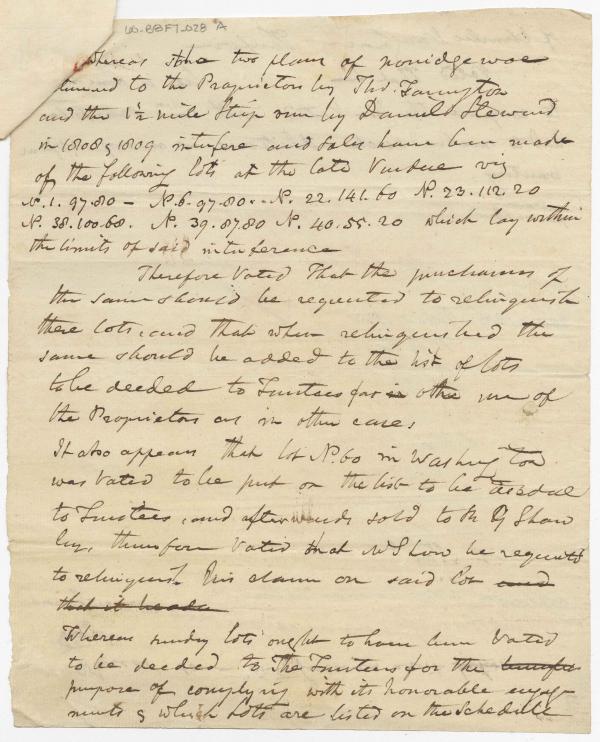 UO-BBFT-028 A
Whereas the two plans of Norridgewoc
returned to the Proprietors by Tho. Farrington
and the 1½ mile Strip run by Daniel Steward
in 1808 & 1809 interfere and sales have been made
of the following lots at the late Vendue viz
N. 1. 97.80 - N. 6. 97.80. - N. 22. 141.60 N. 23. 112.20
N. 38. 100.68. N. 39. 87.80 N. 40. 55.20 which lay within
the limits of said interference
Therefore Voted That the purchasers of
the same should be requested to relinquish
these lots, and that when relinquished the
same should be added to the list of lots
to be deeded to Trustees for the use of
the Proprietors as in other cases,
It also appears that lot N. 60 in Washington
was Voted to be put on the list to be deeded
to Trustees, and afterwards sold to Mr G Shaw
therefore Voted that Mr Shaw be requested
to relinquish his claim on said Lot and
that it
Whereas sundry lots ought to have been Voted
to be deeded to The Trustees for the
purpose of complying with its honorable engage
ments & which Lots are listed on the Schedule